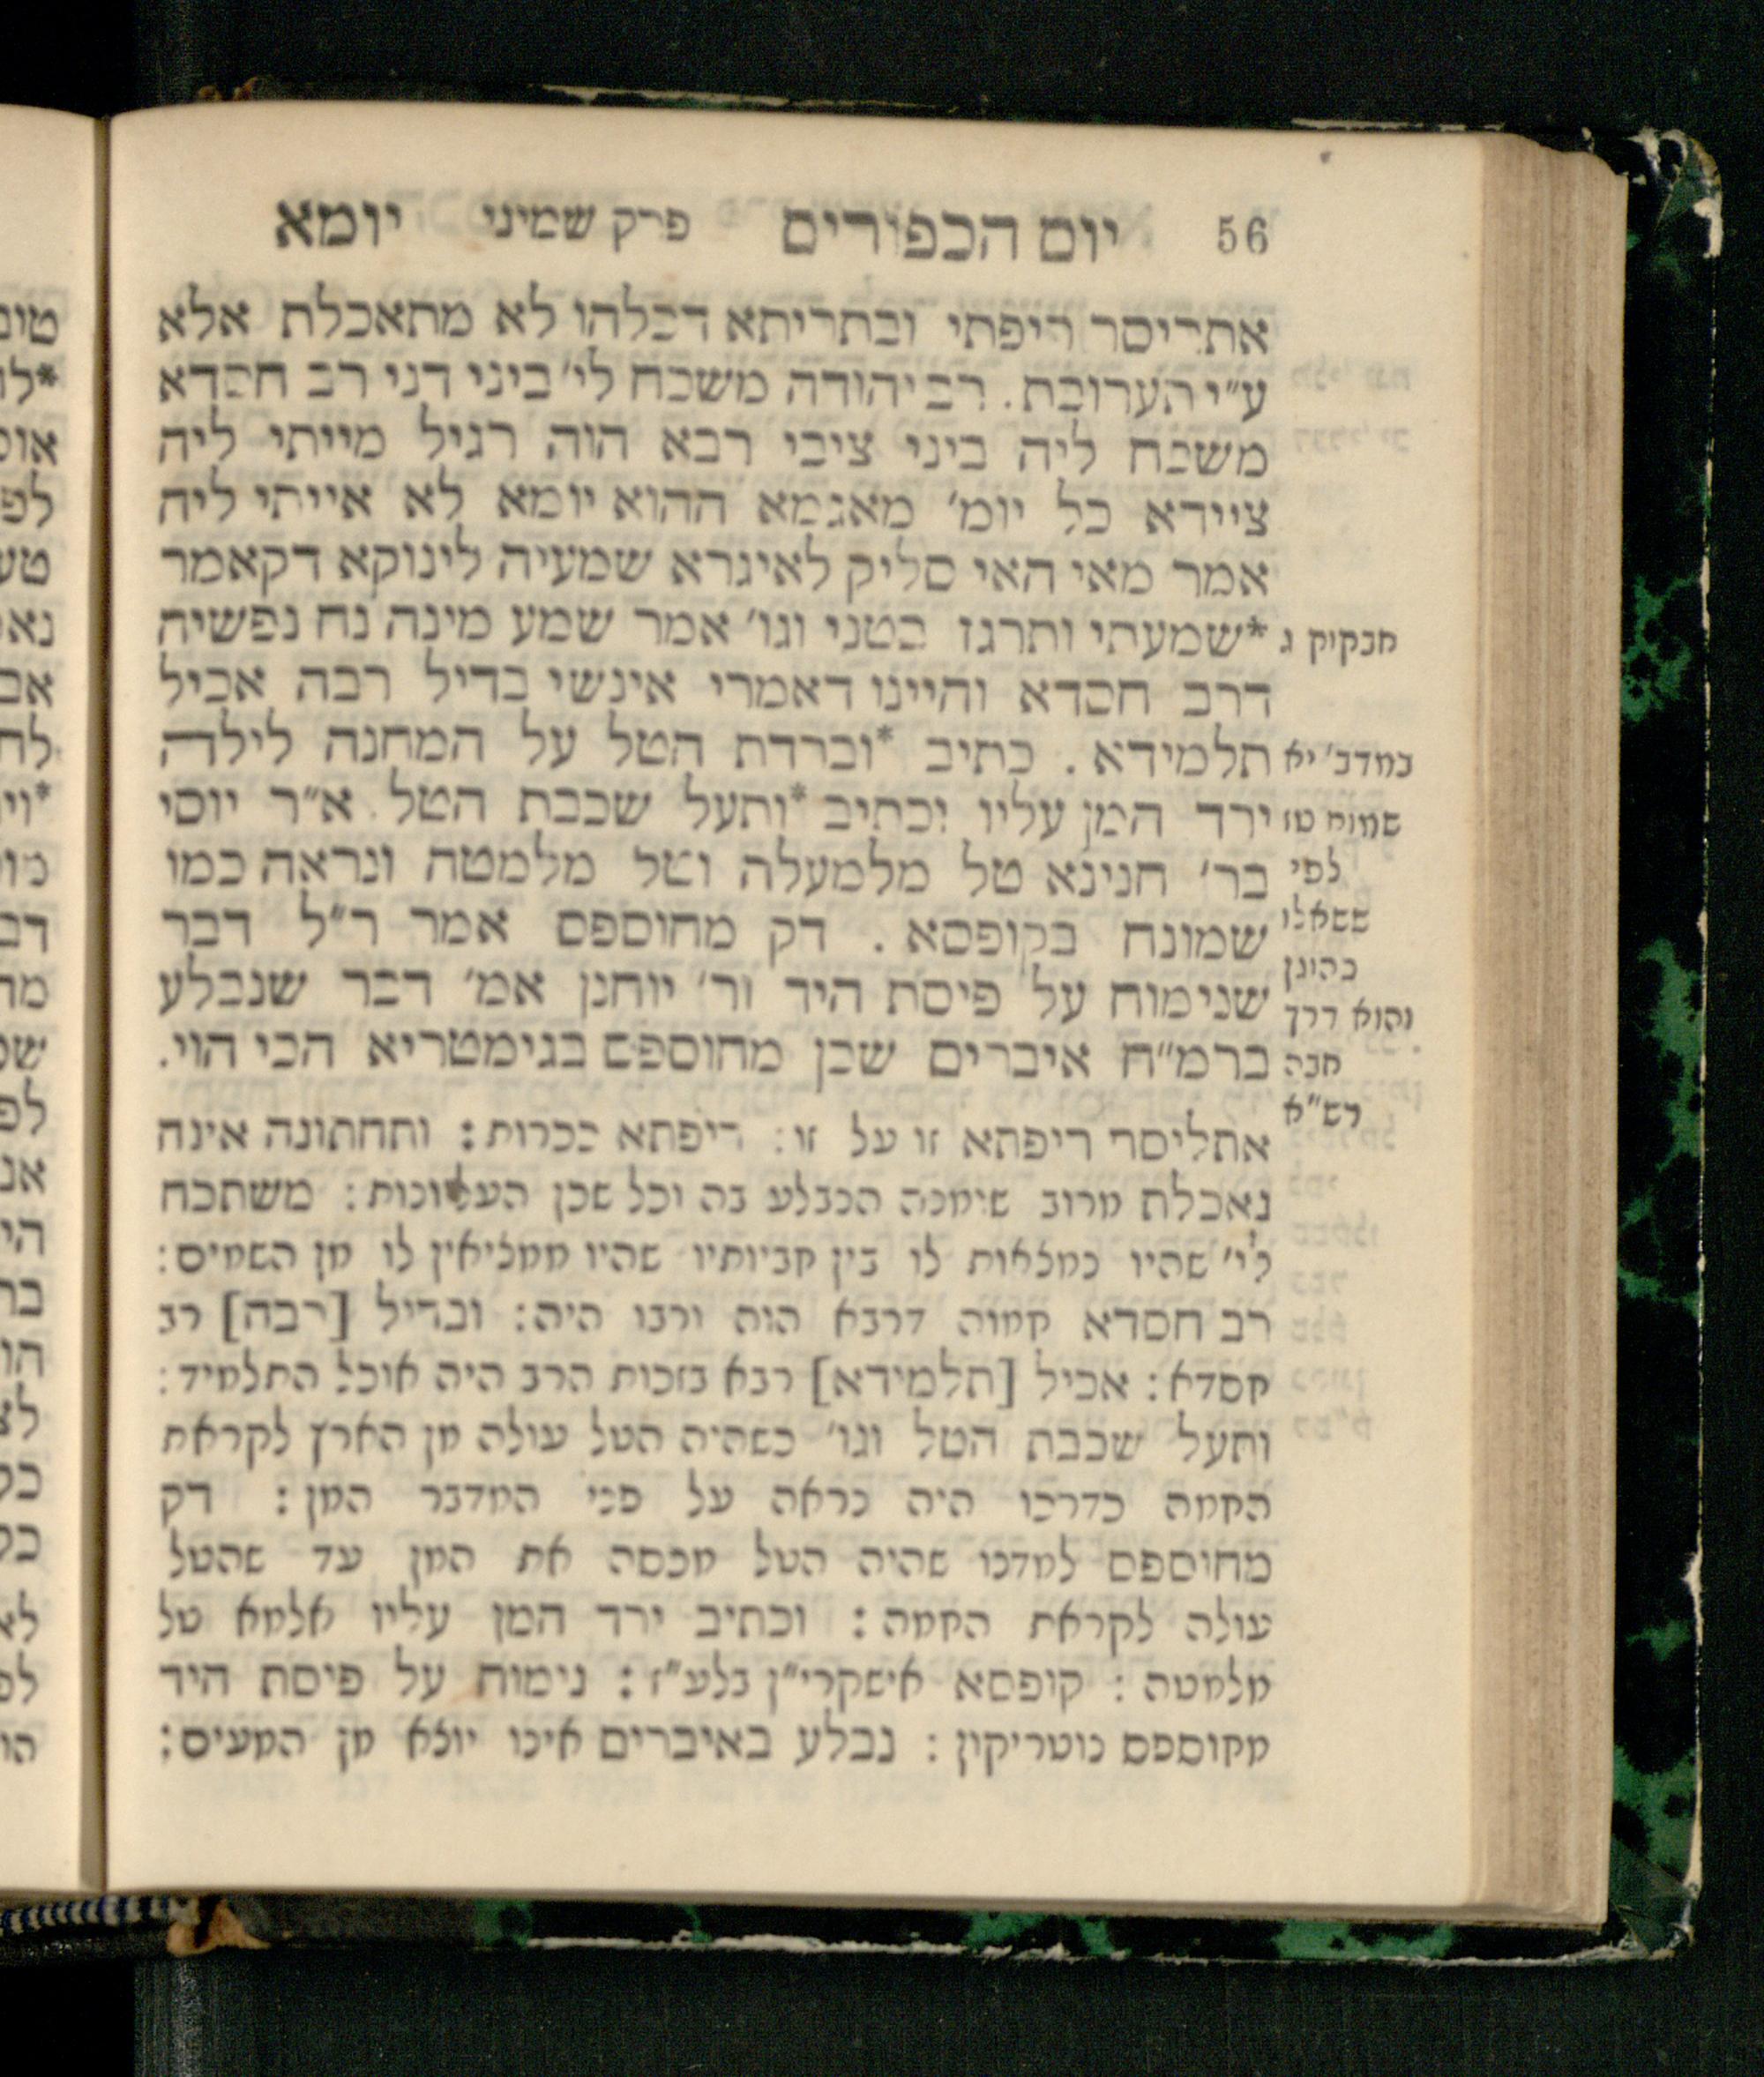 56 יום הכפורים פרק שמיני יומא
אתריסר ריפתי ובתריתא דכלהו לא מתאכלת אלא
ע״י תערובת. רב יהודה משכח לי׳ ביני דני רב חסדא
משכח ליה ביני ציבי רבא הוה רגיל מייתי ליה
ציידא כל יומ׳ מאגמא ההוא יומא לא אייתי ליה
אמר מאי האי סליק לאיגרא שמעיה לינוקא דקאמר
*שמעתי ותרגז בטני וגו׳ אמר שמע מינה נח נפשיה
דרב חסדא והיינו דאמרי אינשי בדיל רבה אכיל
תלמידא. כתיב *וברדת הטל על המחנה לילה
ירד המן עליו וכתיב *ותעל שכבת הטל א״ר יוסי
בר׳ חנינא טל מלמעלה וטל מלמטה ונראה כמו
שמונח בקופסא. דק מחוספס אמר ר״ל דבר
שנימוח על פיסת היד ור׳ יוחנן אמ׳ דבר שנבלע
ברמ״ח איברים שכן מחוספס בגימטריא הכי הוי.
חבקוק ג
במדב׳ יא
שמות טז
לפי
ששאלו
כהוגן
והוא דרך
חבה
רש״א
אתליסר ריפתא זו על זו: ריפתא ככרות: ותחתונה אינה
נאכלת מרוב שימנה הנבלע בה וכל שכן העליונות: משתכח
לי׳ שהיו נמצאות לו בין חביותיו שהיו ממציאין לו מן השמים:
רב חסדא חמוה דרבא הוה ורבו היה: ובדיל [רבה] רב
חסדא: אכיל [תלמידא] רבא בזכות הרב היה אוכל התלמיד:
ותעל שכבת הטל וגו׳ כשהיה הטל עולה מן הארץ לקראת
החמה כדרכו היה נראה על פני המדבר המן: דק
מחוספס למדנו שהיה הטל מכסה את המן עד שהטל
עולה לקראת החמה: וכתיב ירד המן עליו אלמא טל
מלמטה: קופסא אישקרי״ן בלע״ז: נימוח על פיסת היד
מחוספס נוטריקון: נבלע באיברים אינו יוצא מן המעים: